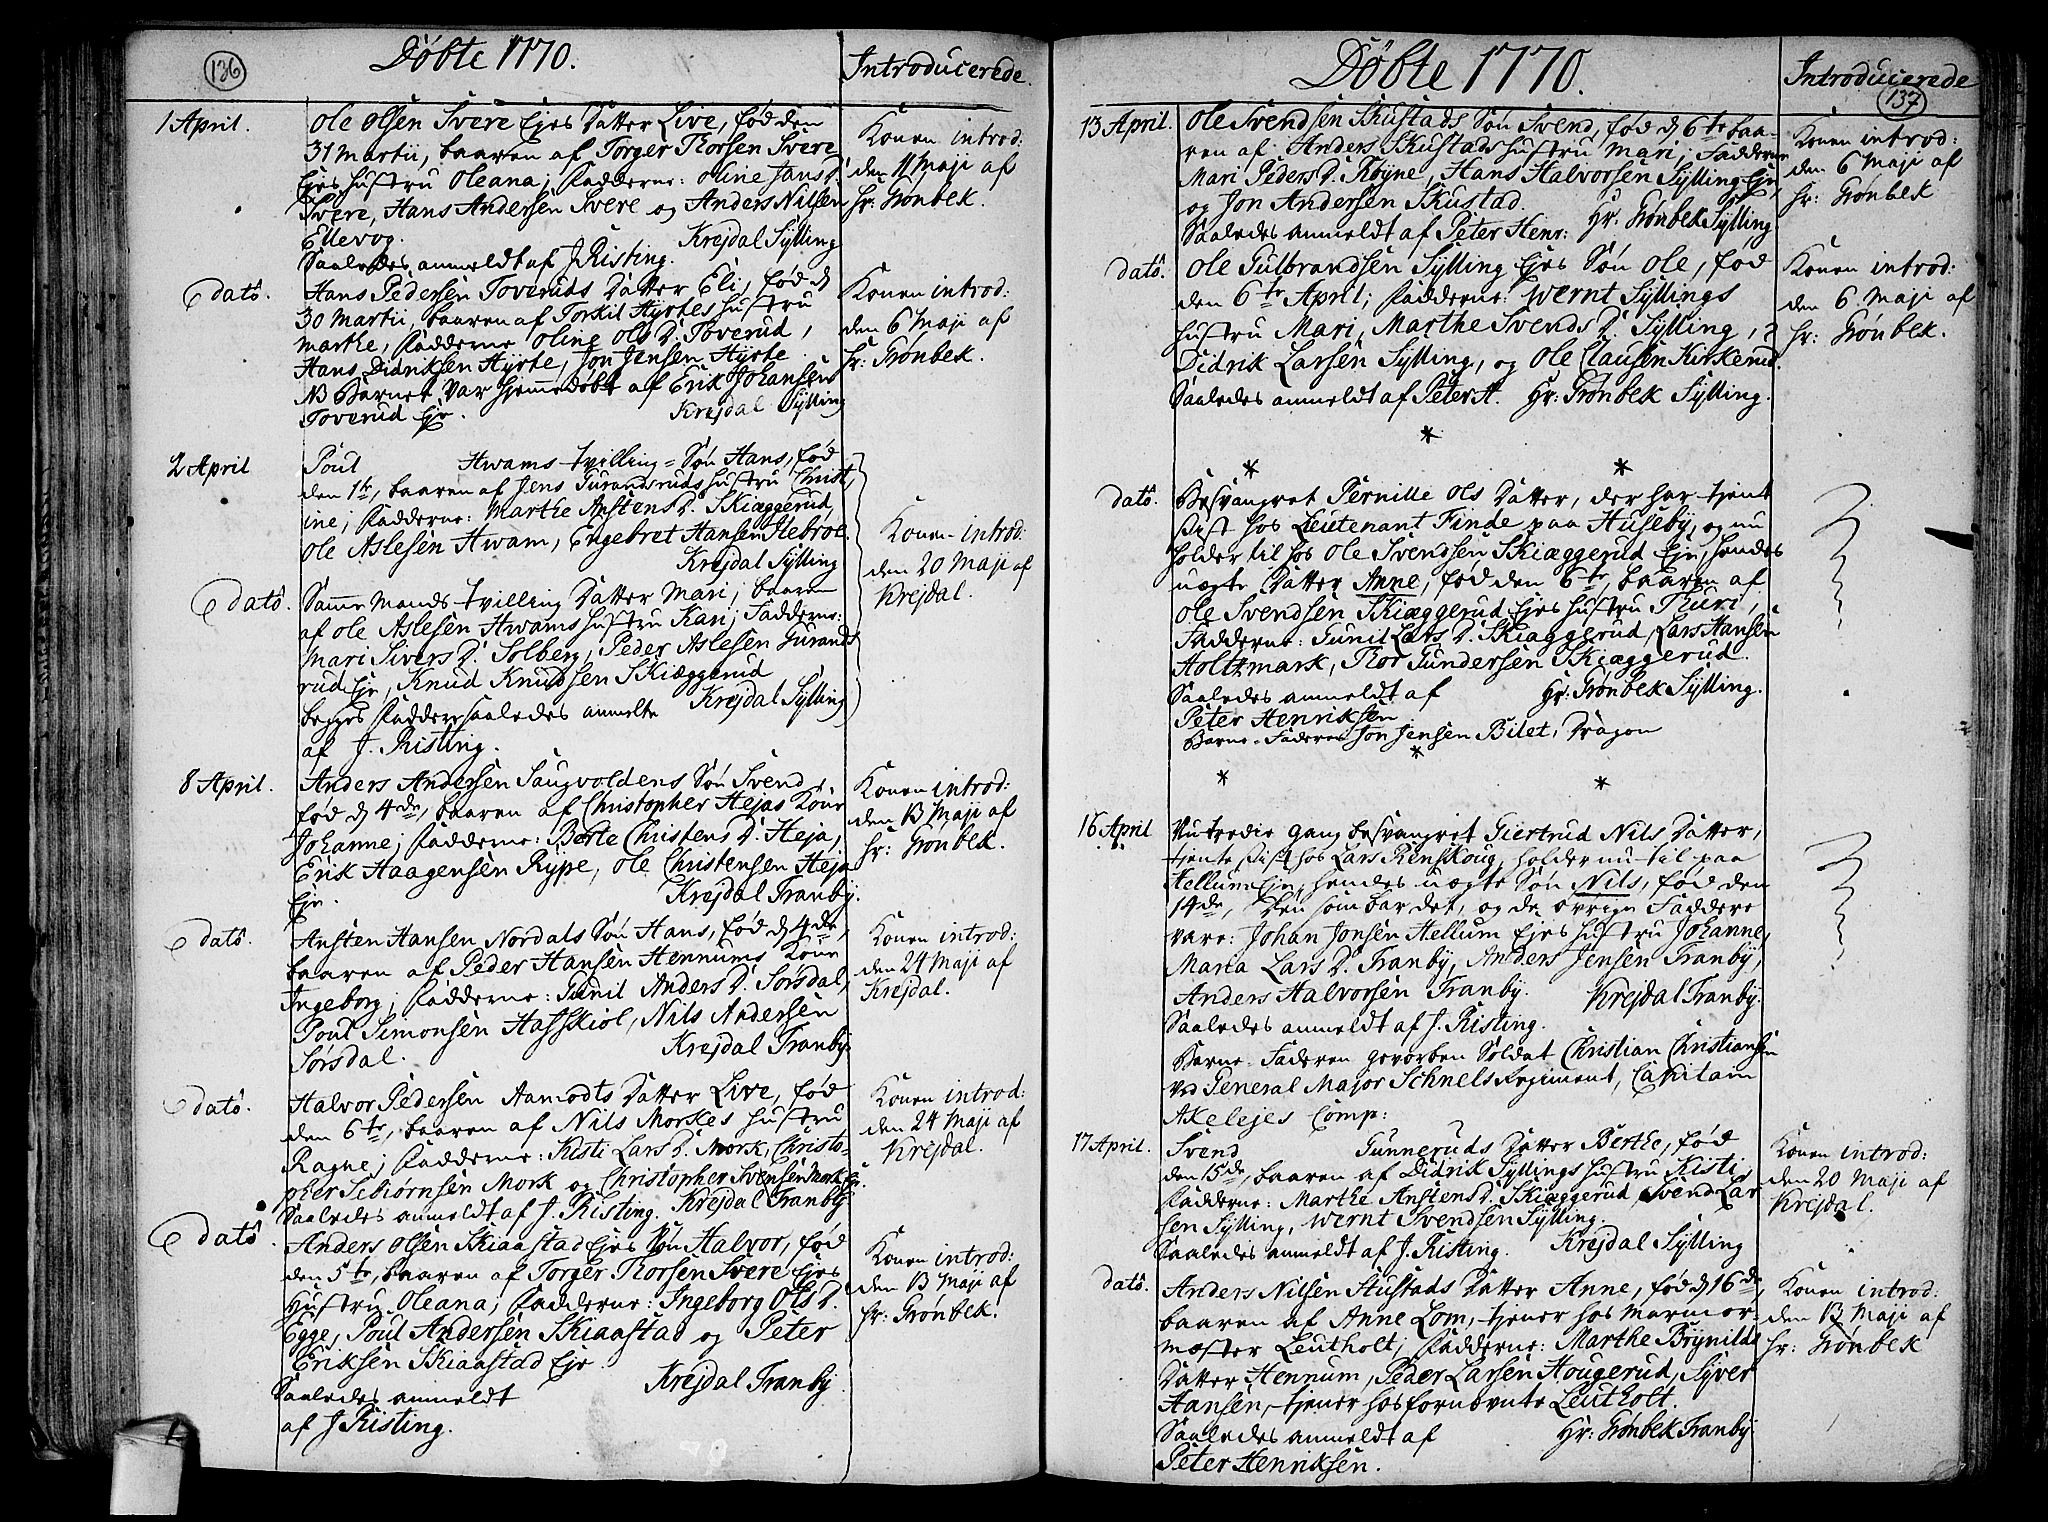 136
Döbte 1770.
Introducerede.
1 April.
Ole Olsen Svere Ejes Datter Live, fød den
31 Martii, baaren af Torger Thorsen Svere
Ejes Hustru Oleana; Fadderne: Oline Jans D.
Svere, Hans Andersen Svere og Anders Nilsen
Ellevog. Krejdal Sylling
Saaledes anmeldt af J. Risting.
Konen introd:
den 11 Maji af
Hr: Grönbek.
dato.
Hans Pedersen Toveruds Datter Eli, fød d
30 Martii, baaren af Torkil Hyrtes Hustru
Marthe, Fadderne Oline Ols D. Toverud,
Hans Didriksen Hyrte, Jon Jensen Hyrte.
NB Barnet var hjemmedöbt af Erik Johansen
Toverud Eje. Krejdal Sylling
Konen introd:
den 6 Maji af
Hr: Grönbek.
2 April
Poul Hwams tvilling-Sön Hans, fød
den 1te, baaren af Jens Gurandsruds Hustru Christ,
ine; Fadderne: Marthe Anstens D. Skiæggerud,
Ole Aslesen Hwam, Engebret Hansen Ilebroe.
Krejdal Sylling
dato.
Samme Mands tvilling Datter Mari; baaren
af Ole Aslesen Hwams Hustru Kari; Fadderne:
Mari Sivers D. Solberg, Peder Aslesen Gurands
rud Eje, Knud Knudsen Skiæggerud
begges Faddere saaledes anmelte Krejdal Sylling
af J. Risting.
Konen introd:
den 20 Maji af
Krejdal.
8 April.
Anders Andersen Saugvoldens Sön Svend,
fød d 4de, baaren af Christopher Hejas Kone
Johanne; Fadderne: Berte Christens D. Heja,
Erik Haagensen Rype, Ole Christensen Heja
Eje. Krejdal Tranby.
Konen introd:
den 13 Maji af
Hr: Grönbek.
dato.
Ansten Hansen Nordals Sön Hans, fød d 4de,
baaren af Peder Hansen Hennums Kone
Ingeborg; Fadderne: Gunil Anders D. Sørsdal,
Poul Simonsen Hasskiol, Nils Andersen
Sørsdal. Krejdal Tranby.
Konen introd:
den 24 Maji af
Krejdal.
dato.
Halvor Pedersen Aamodts Datter Live, fød
den 6te, baaren af Nils Morkes Hustru
Ragne; Fadderne: Kisti Lars D. Mork, Christo-
pher Sebiørnsen Mork og Christopher Svensen Mork Ej.
Saaledes anmeldt af J. Risting. Krejdal Tranby
Konen introd:
den 24 Maji af
Krejdal.
dato.
Anders Olsen Skiaastad Ejes Sön Halvor, fød
den 5te, baaren af Torger Thorsen Svere Ejes
Hustru Oleana; Fadderne: Ingeborg Ols D.
Egge, Poul Andersen Skiaastad og Peter
Eriksen Skiaastad Eje.
Saaledes anmeldt Krejdal Tranby
af J. Risting.
Konen introd:
den 13 Maji af
Hr: Grönbek.
Döbte 1770.
Introducerede
137
13 April.
Ole Svendsen Skustads Sön Svend, fød d 6te baa-
ren af Anders Skustads Hustru Mari; Fadderne
Mari Peders D. Røyne, Hans Halvorsen Sylling Eje,
og Jon Andersen Skustad.
Saaledes anmeldt af Peter Henr: Hr. Grönbek Sylling.
Konen introd:
den 6 Maji af
Hr: Grönbek
dato.
Ole Gulbrandsen Sylling Ejes Sön Ole, fød
den 6te April; Fadderne: Wernt Syllings
Hustru Mari, Marthe Svends D. Sylling,
Didrik Larsen Sylling, og Ole Clausen Kirkerud.
Saaledes anmeldt af Peter H. Hr: Grönbek Sylling.
Konen introd:
den 6 Maji af
Hr: Grönbek.
*
* *
dato.
Besvangret Pernille Ols Datter, der har tjent
sist hos Leutenant Finde paa Huseby, og nu
holder til hos Ole Svendsen Skiæggerud Eje, hendes
uægte Datter Anne, fød den 6te, baaren af
Ole Svendsen Skiæggerud Ejes Hustru Thuri,
Fadderne: Gunil Lars D. Skiæggerud, Lars Hansen
Holtzmark, Thor Gundersen Skiæggerud.
Saaledes anmeldt af Hr: Grönbek Sylling.
Peter Henriksen
Barne-Faderen Jon Jensen Bilet, Dragon
*
* *
16 April
Nu tredie gang besvangret Giertrud Nils Datter,
tjente sist hos Lars Renskoug, holder nu til paa
Hellum Eje, hendes uægte Sön Nils, fød den
14de, Den som bar det, og de övrige Faddere
vare: Johan Jonsen Hellum Ejes Hustru Johanne,
Maria Lars D. Tranby, Anders Jensen Tranby,
Anders Halvorsen Tranby. Krejdal Tranby.
Saaledes anmeldt af J. Risting.
Barne-Faderen gevorben Soldat Christian Christiansen
ved General Major Schnels Regiment, Capitain
Akelejes Comp:
17 April.
Svend Gunneruds Datter Berthe, fød
den 15de, baaren af Didrik Syllings Hustru Kisti,
Fadderne: Marthe Anstens D. Skiæggerud, Svend Lar
sen Sylling, Wernt Svendsen Sylling.
Saaledes anmeldt af J. Risting. Krejdal Sylling
Konen introd:
den 20 Maji af
Krejdal.
dato.
Anders Nilsen Skustads Datter Anne, fød d 16de,
baaren af Anne Lom, tjener hos Marmor-
mester Leutholt; Fadderne: Marthe Brynilds
Datter Hennum, Peder Larsen Hougerud, Syver
Hansen, tjener hos fornevnte Leutholt.
Saaledes anmeldt af Hr: Grönbek Tranby
Peter Henriksen.
Konen introd:
den 13 Maji af
Hr: Grönbek